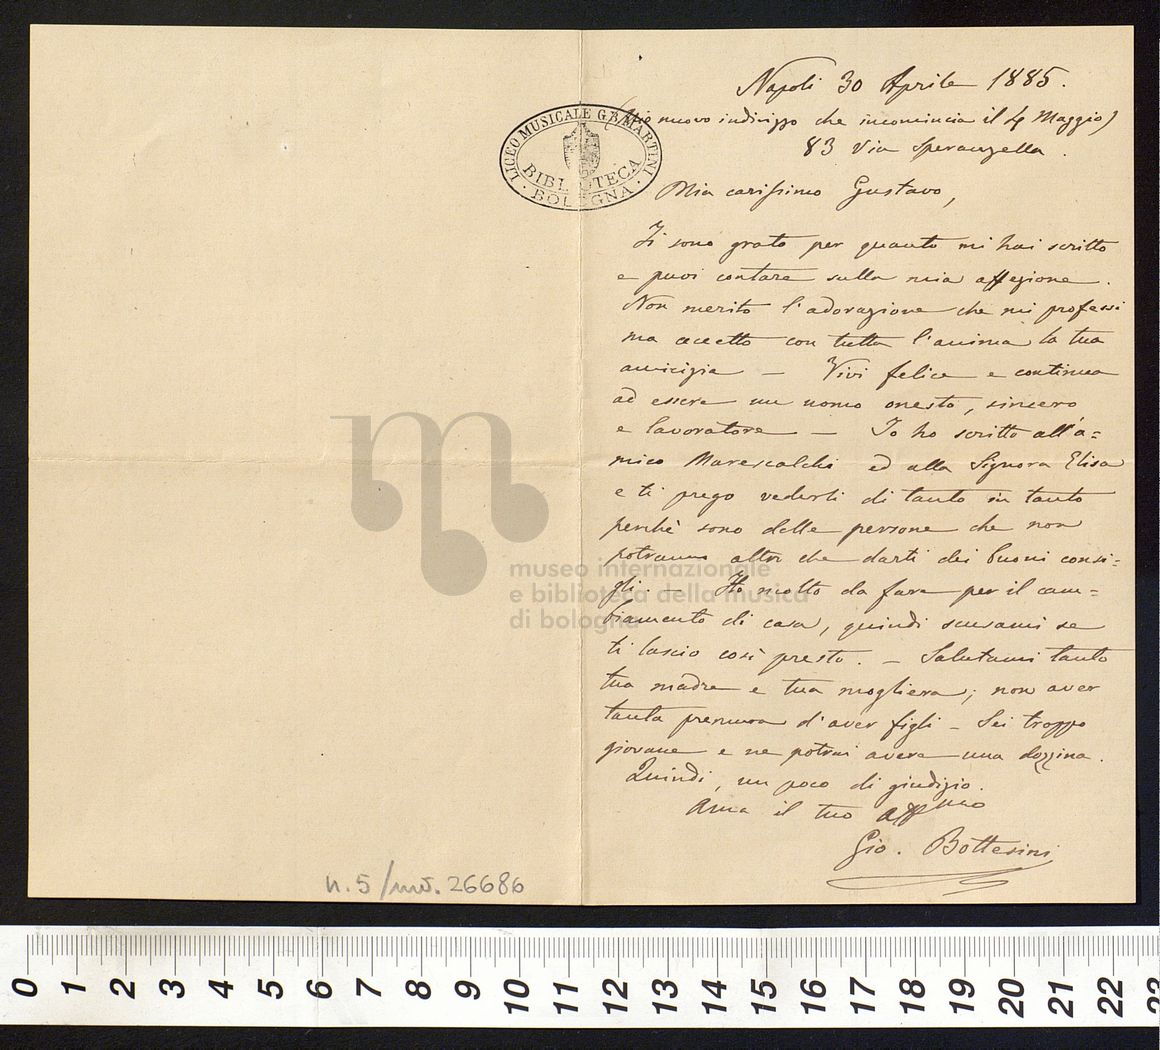 Napoli 30 Aprile 1885.
(Mio nuovo indirizzo che incomincia il 4 Maggio)
83 Via Speranzella.
LICEO MUSICALE G.B. MARTINI
BIBLIOTECA
BOLOGNA
Mia carissimo Gustavo,
Ti sono grato per quanto mi hai scritto
e puoi contare sulla mia affezione.
Non merito l'adorazione che mi professi
ma accetto con tutta l'anima la tua
amicizia — Vivi felice e continua
ad essere un uomo onesto, sincero
e lavoratore — Io ho scritto all'a=
mico Marescalchi ed alla Signora Elisa
e ti prego vederli di tanto in tanto
perchè sono delle persone che non
potranno altro che darti dei buoni consi=
gli. — Ho molto da fare per il cam=
biamento di casa, quindi scusami se
ti lascio così presto. — Salutami tanto
tua madre e tua mogliera; non aver
tanta premura d'aver figli — Sei troppo
giovane e ne potrai avere una dozzina.
Quindi, un poco di giudizio.
Ama il tuo affmo
Gio. Bottesini
museo internazionale
e biblioteca della musica
di bologna
n. 5 / inv. 26686
0 1 2 3 4 5 6 7 8 9 10 11 12 13 14 15 16 17 18 19 20 21 22 23